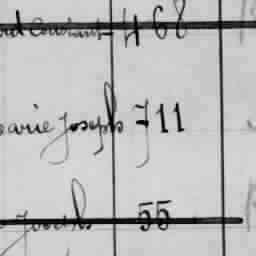 468
arie Joseph 711
Joseph 55